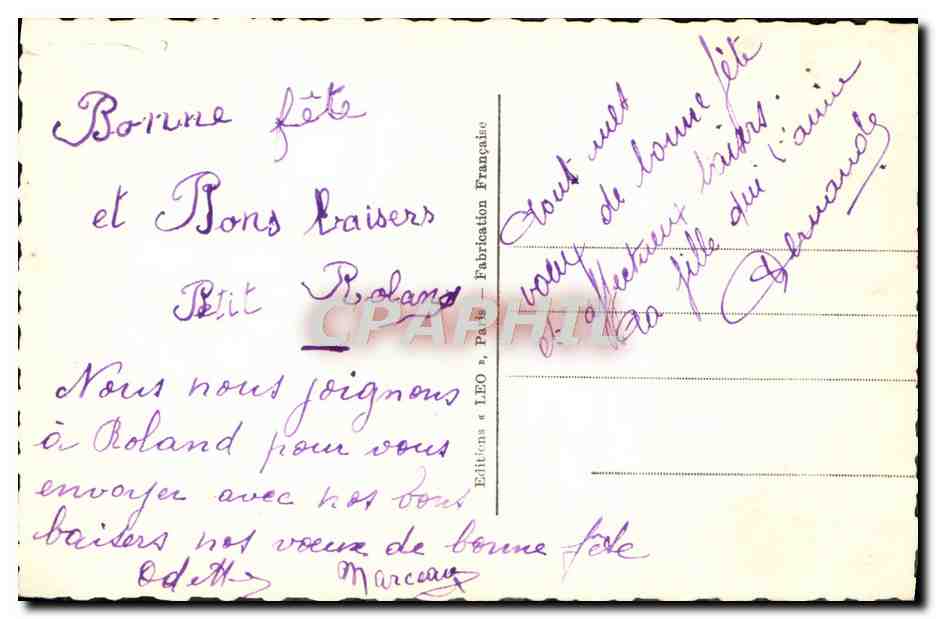 Bonne fête
et Bons baisers
Petit Roland
Nous nous joignons
à Roland pour vous
envoyer avec nos bons
baisers nos vœux de bonne fête
Odette Marceau
Editions « LEO », Paris — Fabrication Française
tout mes
vœux de bonne fête
et affectueux baisers.
ta fille qui t'aime
Fernande
CPAPHIL